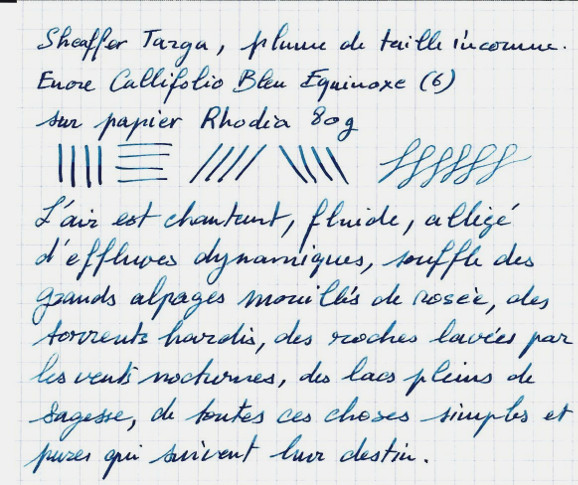 Sheaffer Targa, plume de taille inconnue.
Encre Callifolio Bleu Equinoxe (6)
sur papier Rhodia 80g
L'air est chantant, fluide, allégé
d'effluves dynamiques, souffle des
grands alpages mouillés de rosée, des
torrents hardis, des roches lavées par
les vents nocturnes, des lacs pleins de
sagesse, de toutes ces choses simples et
pures qui suivent leur destin.